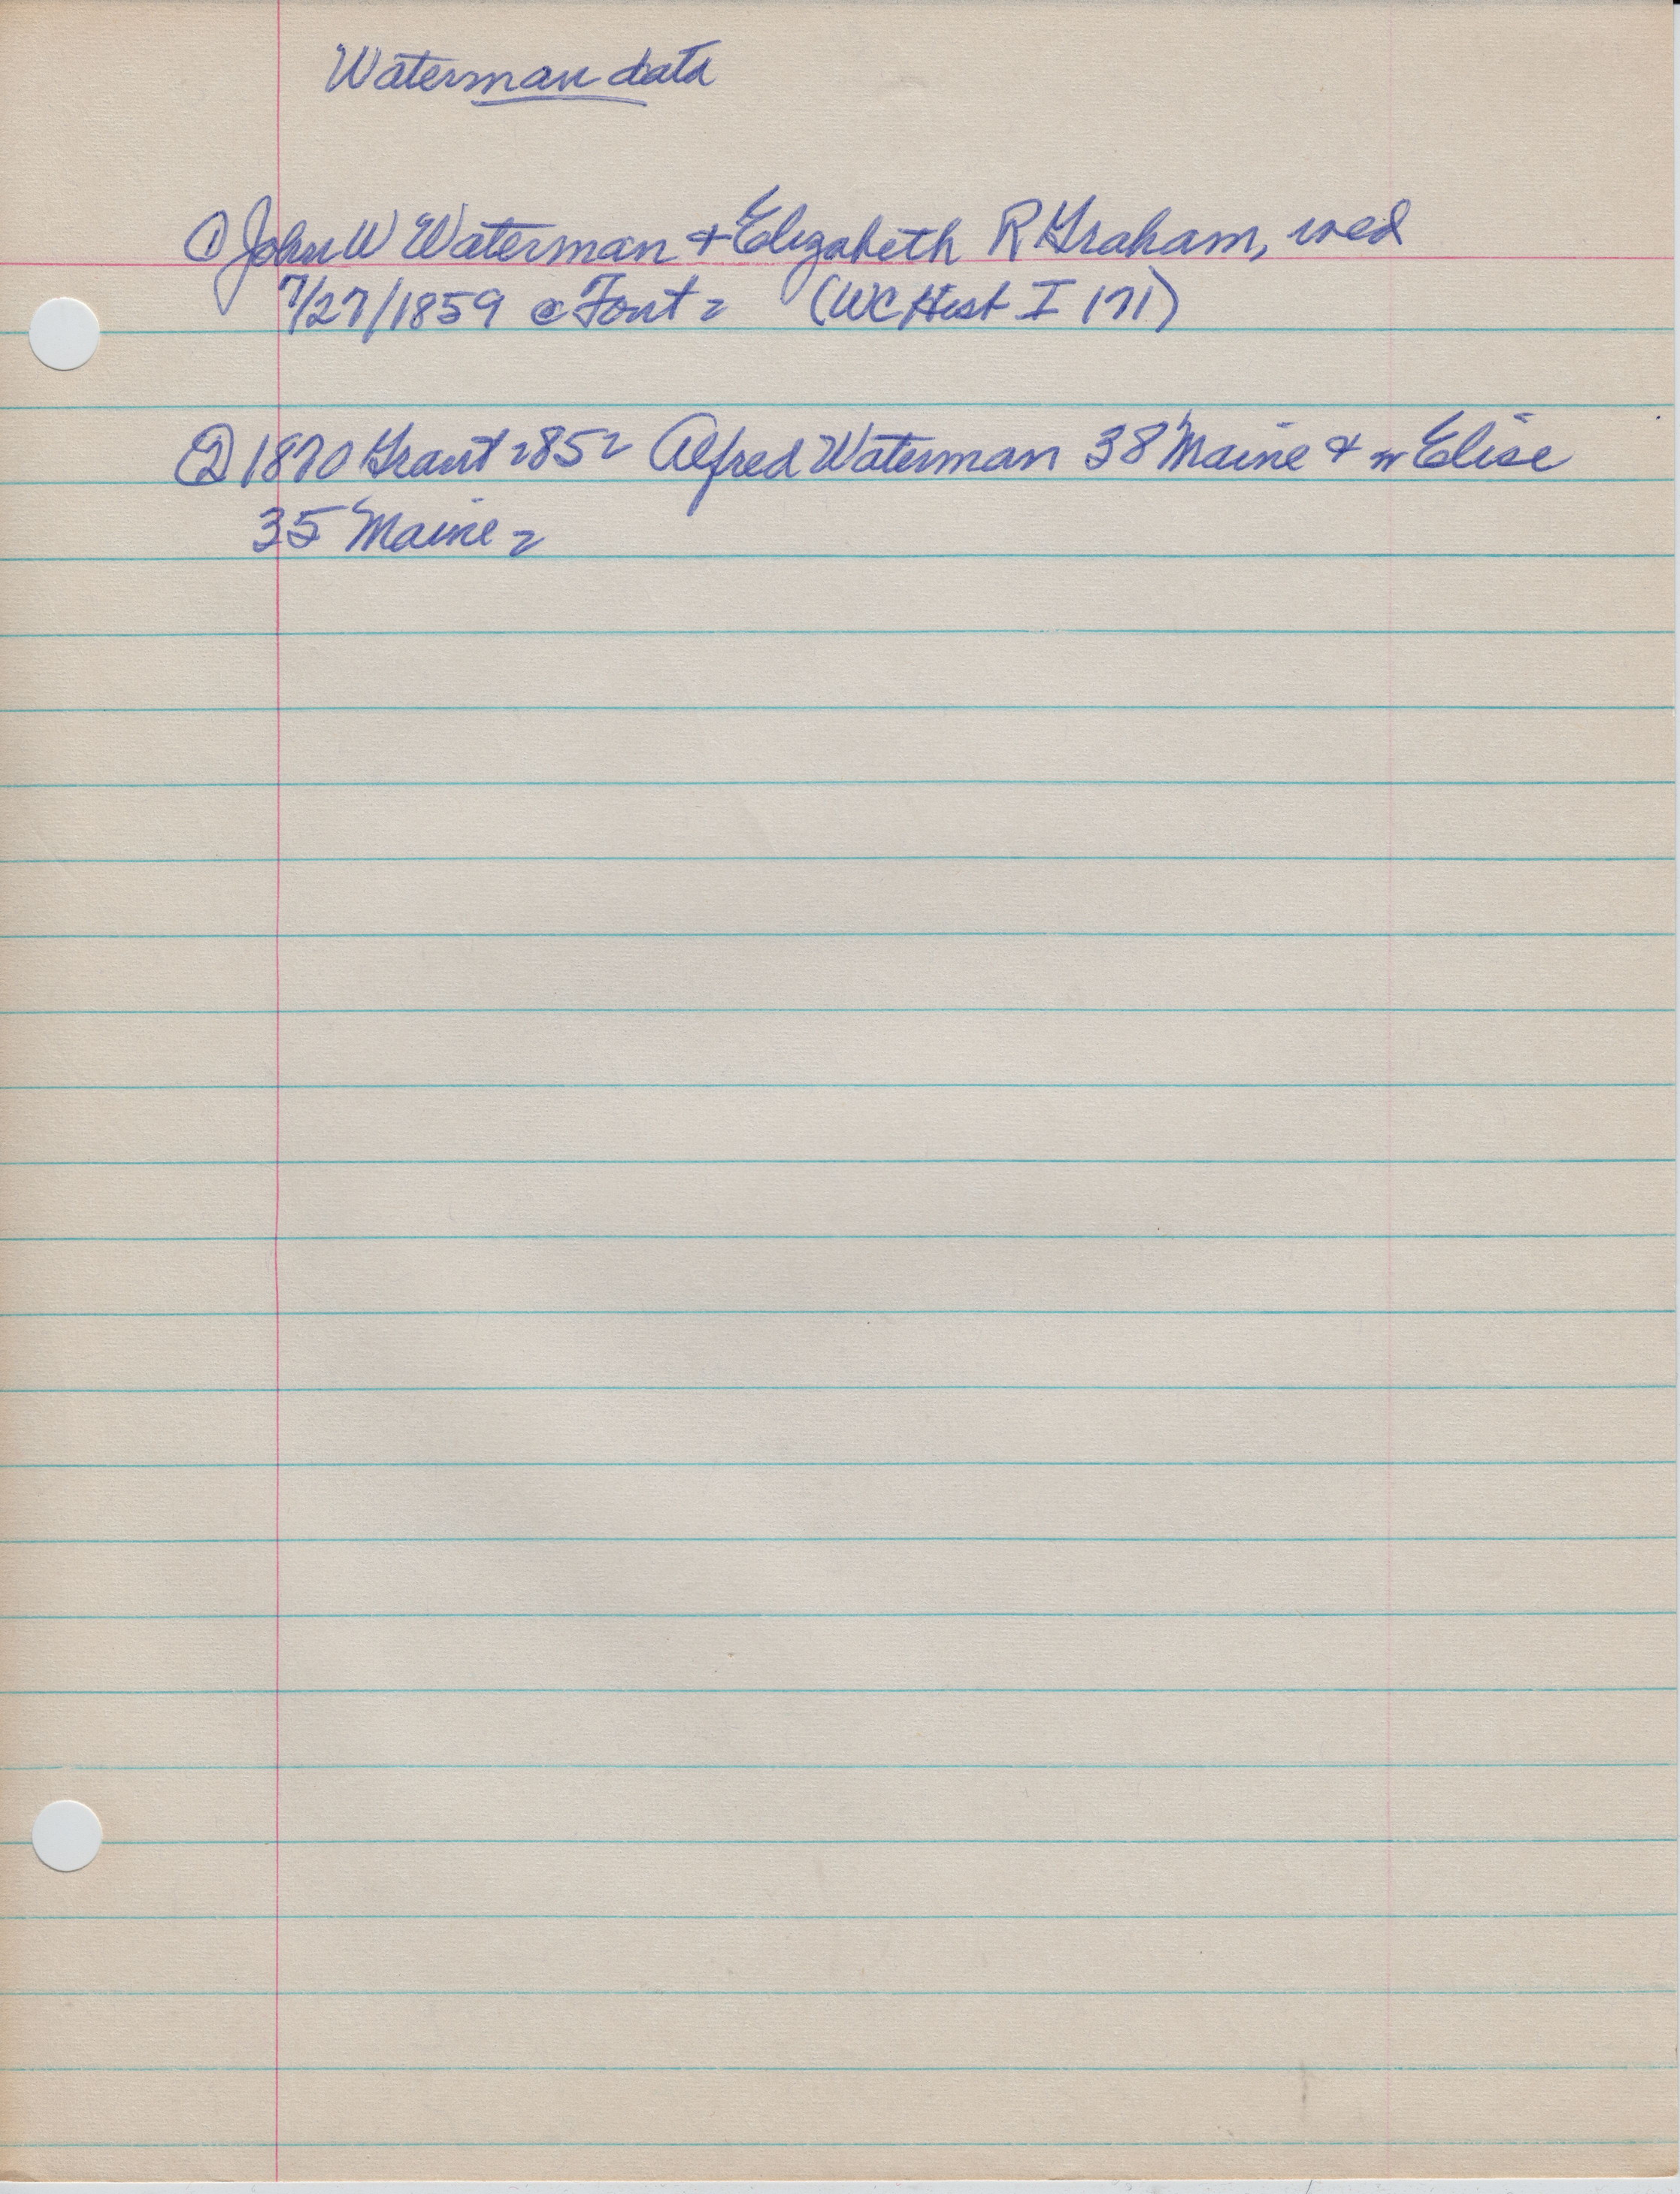 Waterman data
① John W Waterman + Elizabeth R Graham, wed
7/27/1859 c Font = (WC Hist I 171)
② 1870 Grant =85= Alfred Waterman 38 Maine & w Elise
35 Maine =